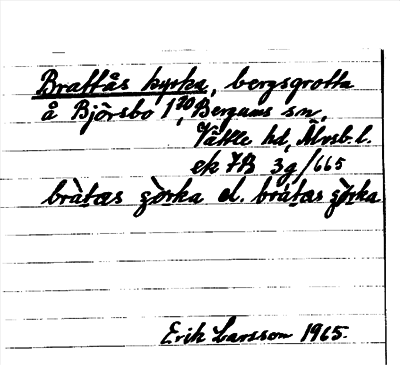 Brattås kyrka, bergsgrotta
å Björsbo 1²⁰, Bergums sn,
Vättle hd, Älvsb. l.
ek 7B 3g/665
bràtas çòrka el. brátas çòrka
Erik Larsson 1965.